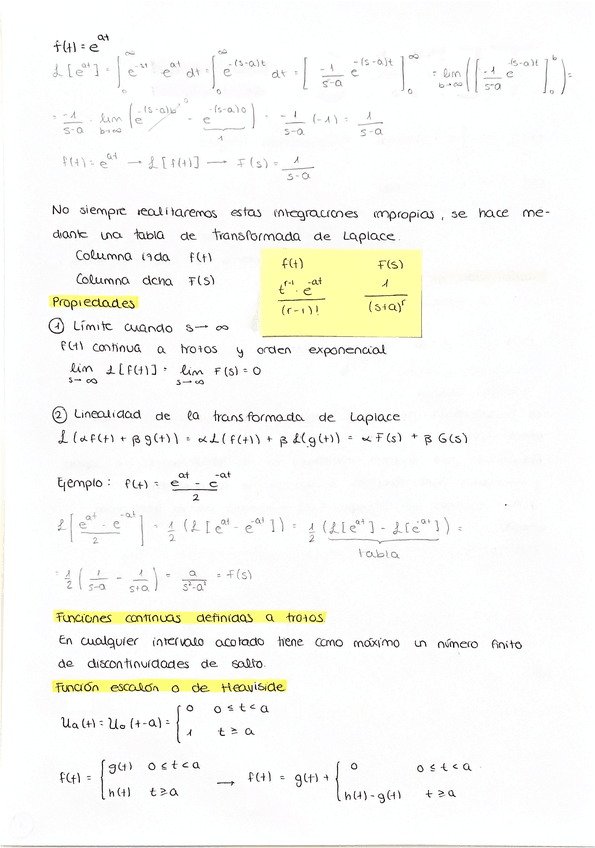 f(t) = e^at
ℒ[e^at] = ∫₀^∞ e^-st · e^at dt = ∫₀^∞ e^-(s-a)t dt = [ -1/(s-a) e^-(s-a)t ]₀^∞ = lim b→∞ ([ -1/(s-a) e^-(s-a)t ]₀^b) =
= -1/(s-a) · lim b→∞ (e^-(s-a)b → 0 - e^-(s-a)0) = -1/(s-a) (-1) = 1/(s-a)
1
f(t) = e^at → ℒ[f(t)] → F(s) = 1/(s-a)
No siempre realizaremos estas integraciones impropias, se hace me-
diante una tabla de transformada de Laplace.
Columna izda f(t)
Columna dcha F(s)
f(t) F(s)
t^(r-1) · e^-at / (r-1)! 1/(s+a)^r
Propiedades
① Límite cuando s→∞
f(t) continua a trozos y orden exponencial
lim s→∞ ℒ[f(t)] = lim s→∞ F(s) = 0
② Linealidad de la transformada de Laplace
ℒ(αf(t) + βg(t)) = αℒ(f(t)) + βℒ(g(t)) = αF(s) + βG(s)
Ejemplo: f(t) = (e^at - e^-at)/2
ℒ[(e^at - e^-at)/2] = 1/2 (ℒ[e^at - e^-at]) = 1/2 (ℒ[e^at] - ℒ[e^-at]) =
tabla
= 1/2 (1/(s-a) - 1/(s+a)) = a/(s²-a²) = F(s)
Funciones continuas definidas a trozos
En cualquier intervalo acotado tiene como máximo un número finito
de discontinuidades de salto.
Función escalón o de Heaviside
Ua(t) = U₀(t-a) = { 0 0 ≤ t < a
1 t ≥ a
f(t) = { g(t) 0 ≤ t < a → f(t) = g(t) + { 0 0 ≤ t < a
h(t) t ≥ a h(t)-g(t) t ≥ a